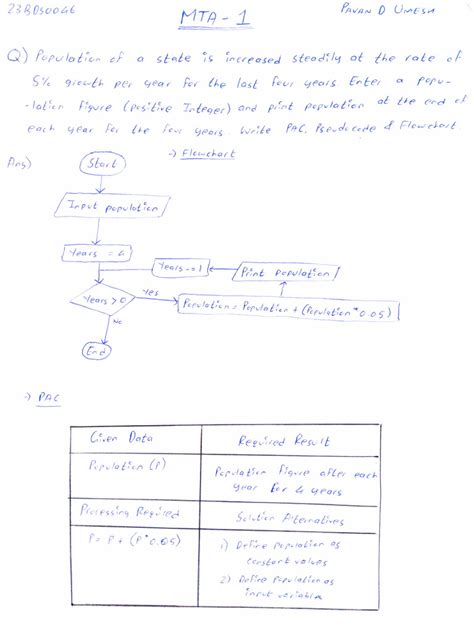 23BDS0046
MTA-1
PAVAN D UMESH
Q) Population of a state is increased steadily at the rate of
5% growth per year for the last four years. Enter a popu-
-lation figure (positive Integer) and print population at the end of
each year for the four years. Write PAC, Pseudocode & Flowchart.
Ans)
→ Flowchart
Start
Input population
Years = 4
Years -= 1
Print Population
Years > 0
Yes
Population = Population + (Population * 0.05)
No
End
→ PAC
Given Data
Required Result
Population (P)
Population figure after each
year for 4 years
Processing Required
Solution Alternatives
P = P + (P * 0.05)
1) Define population as
constant values
2) Define Population as
input variables